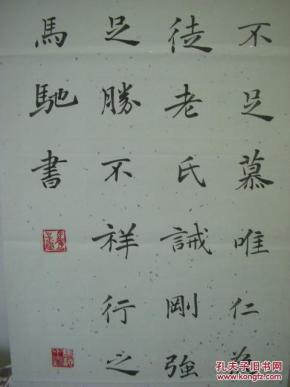 不足慕唯仁為
徒老氏誡剛強
足勝不祥行之
馬馳書